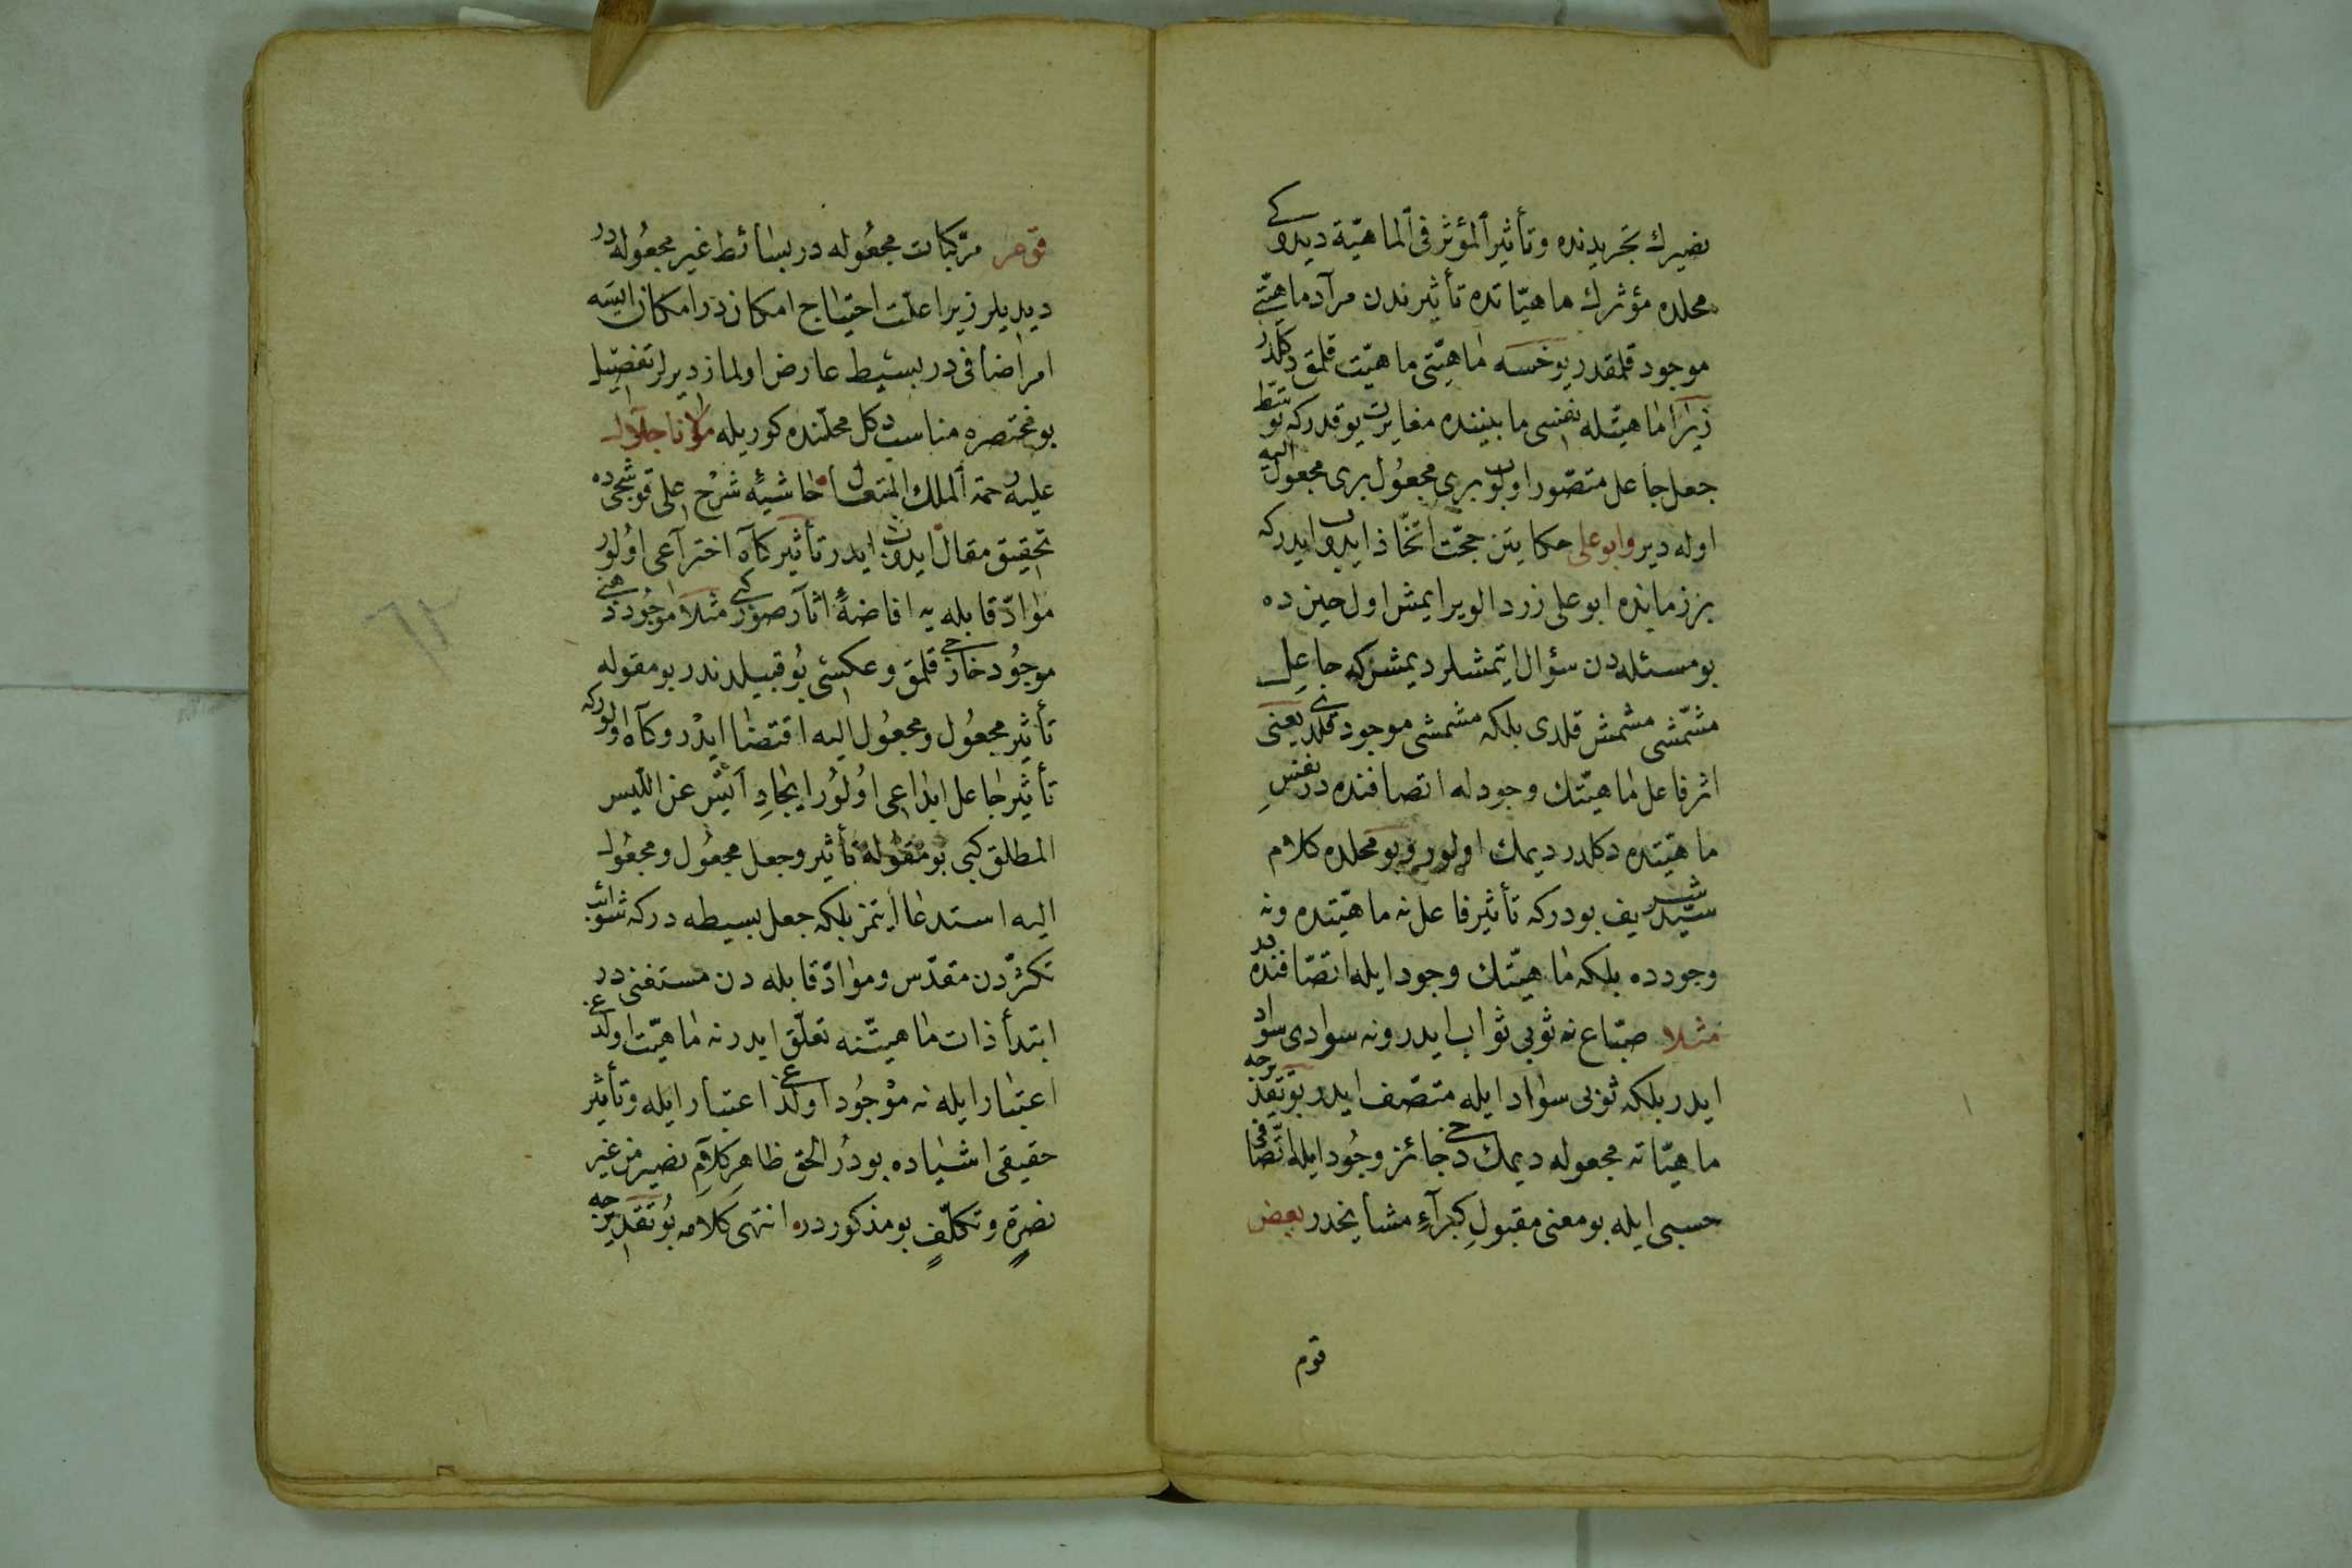 نصيرك تجريدنده وتأثير المؤثر فى الماهيّة ديدوكى
محلده مؤثرك ماهيّاتده تأثيرندن مرآد ماهيّتى
موجود قلمقدر يوخسه ماهيّتى ماهيّت قلمق دكلدر
زيرا ماهيّتله نفسى مابيننده مغايرت يوقدركه توسّط
جعل جاعل متصّور اولوب برى مجعُول برى مجعول اليه
اوله دير وابوعلى حكايتن حجّت اتّخاذ ايدوب ايدركه
بر زمانده ابوعلى زرد الو ير ايمش اول حين ده
بو مسئله دن سؤال ايتمشلر ديمش كه جاعل
مشمّشى مشمش قلدى بلكه مشمشى موجود قلدى يعنى
اثر فاعل ماهيّتك وجودله اتصافنده در نفسِ
ماهيّتده دكلدر ديمك اولور و بو محلده كلام
سيّد شريف بودركه تأثير فاعل نه ماهيّتده ونه
وجودده بلكه ماهيّتك وجود ايله اتصّافنده در
مثلا صبّاغ نه ثوبى ثواب ايدر ونه سوادى سواد
ايدر بلكه ثوبى سواد ايله متصّف ايدر بو تقديرجه
ماهيّاته مجعوله ديمك دخى جائز وجُود ايله اتّصافى
حسبى ايله بو معنى مقبولِ كبرآءِ مشايخدر بعض
قوم
قوم مركّبات مجعُوله در بسائط غير مجعُوله در
ديديلر زيرا علّت احتياج امكاندر امكان ايسه
امر اضافى در بسيط عارض اولماز ديرلر تفصيل
بو مختصره مناسب دكل محلّنده كوريله مولانا جلال
عليه رحمة الملك المتعال حاشيهٔ شرح على قوشجى ده
تحقيق مقال ايدوب ايدر تأثير كاه اختراعى اولور
موادّ قابله يه افاضهٔ اثار صور كبى مثلا موجُود ذهنى
موجُود خارجى قلمق وعكسى بو قبيلدندر بو مقوله
تأثير مجعُول ومجعُول اليه اقتضا ايدر وكاه اولوركه
تأثير جاعل ابداعى اولور ايجادِ ايس عن الليس
المطلق كبى بو مقوله تأثير وجعل مجعُول ومجعُول
اليه استدعا ايتمز بلكه جعل بسيطه دركه شوائب
تكثّردن مقدّس وموادّ قابله دن مستغنى در
ابتدأ ذات ماهيّتنه تعلّق ايدر نه ماهيّت اولدغى
اعتبار ايله نه موجُود اولدغى اعتبار ايله وتأثير
حقيقى اشياده بودر الحق ظاهر كلامِ نصير من غير
نصرة وتكلّف بو مذكوردر انتهى كلامه بو تقديرجه